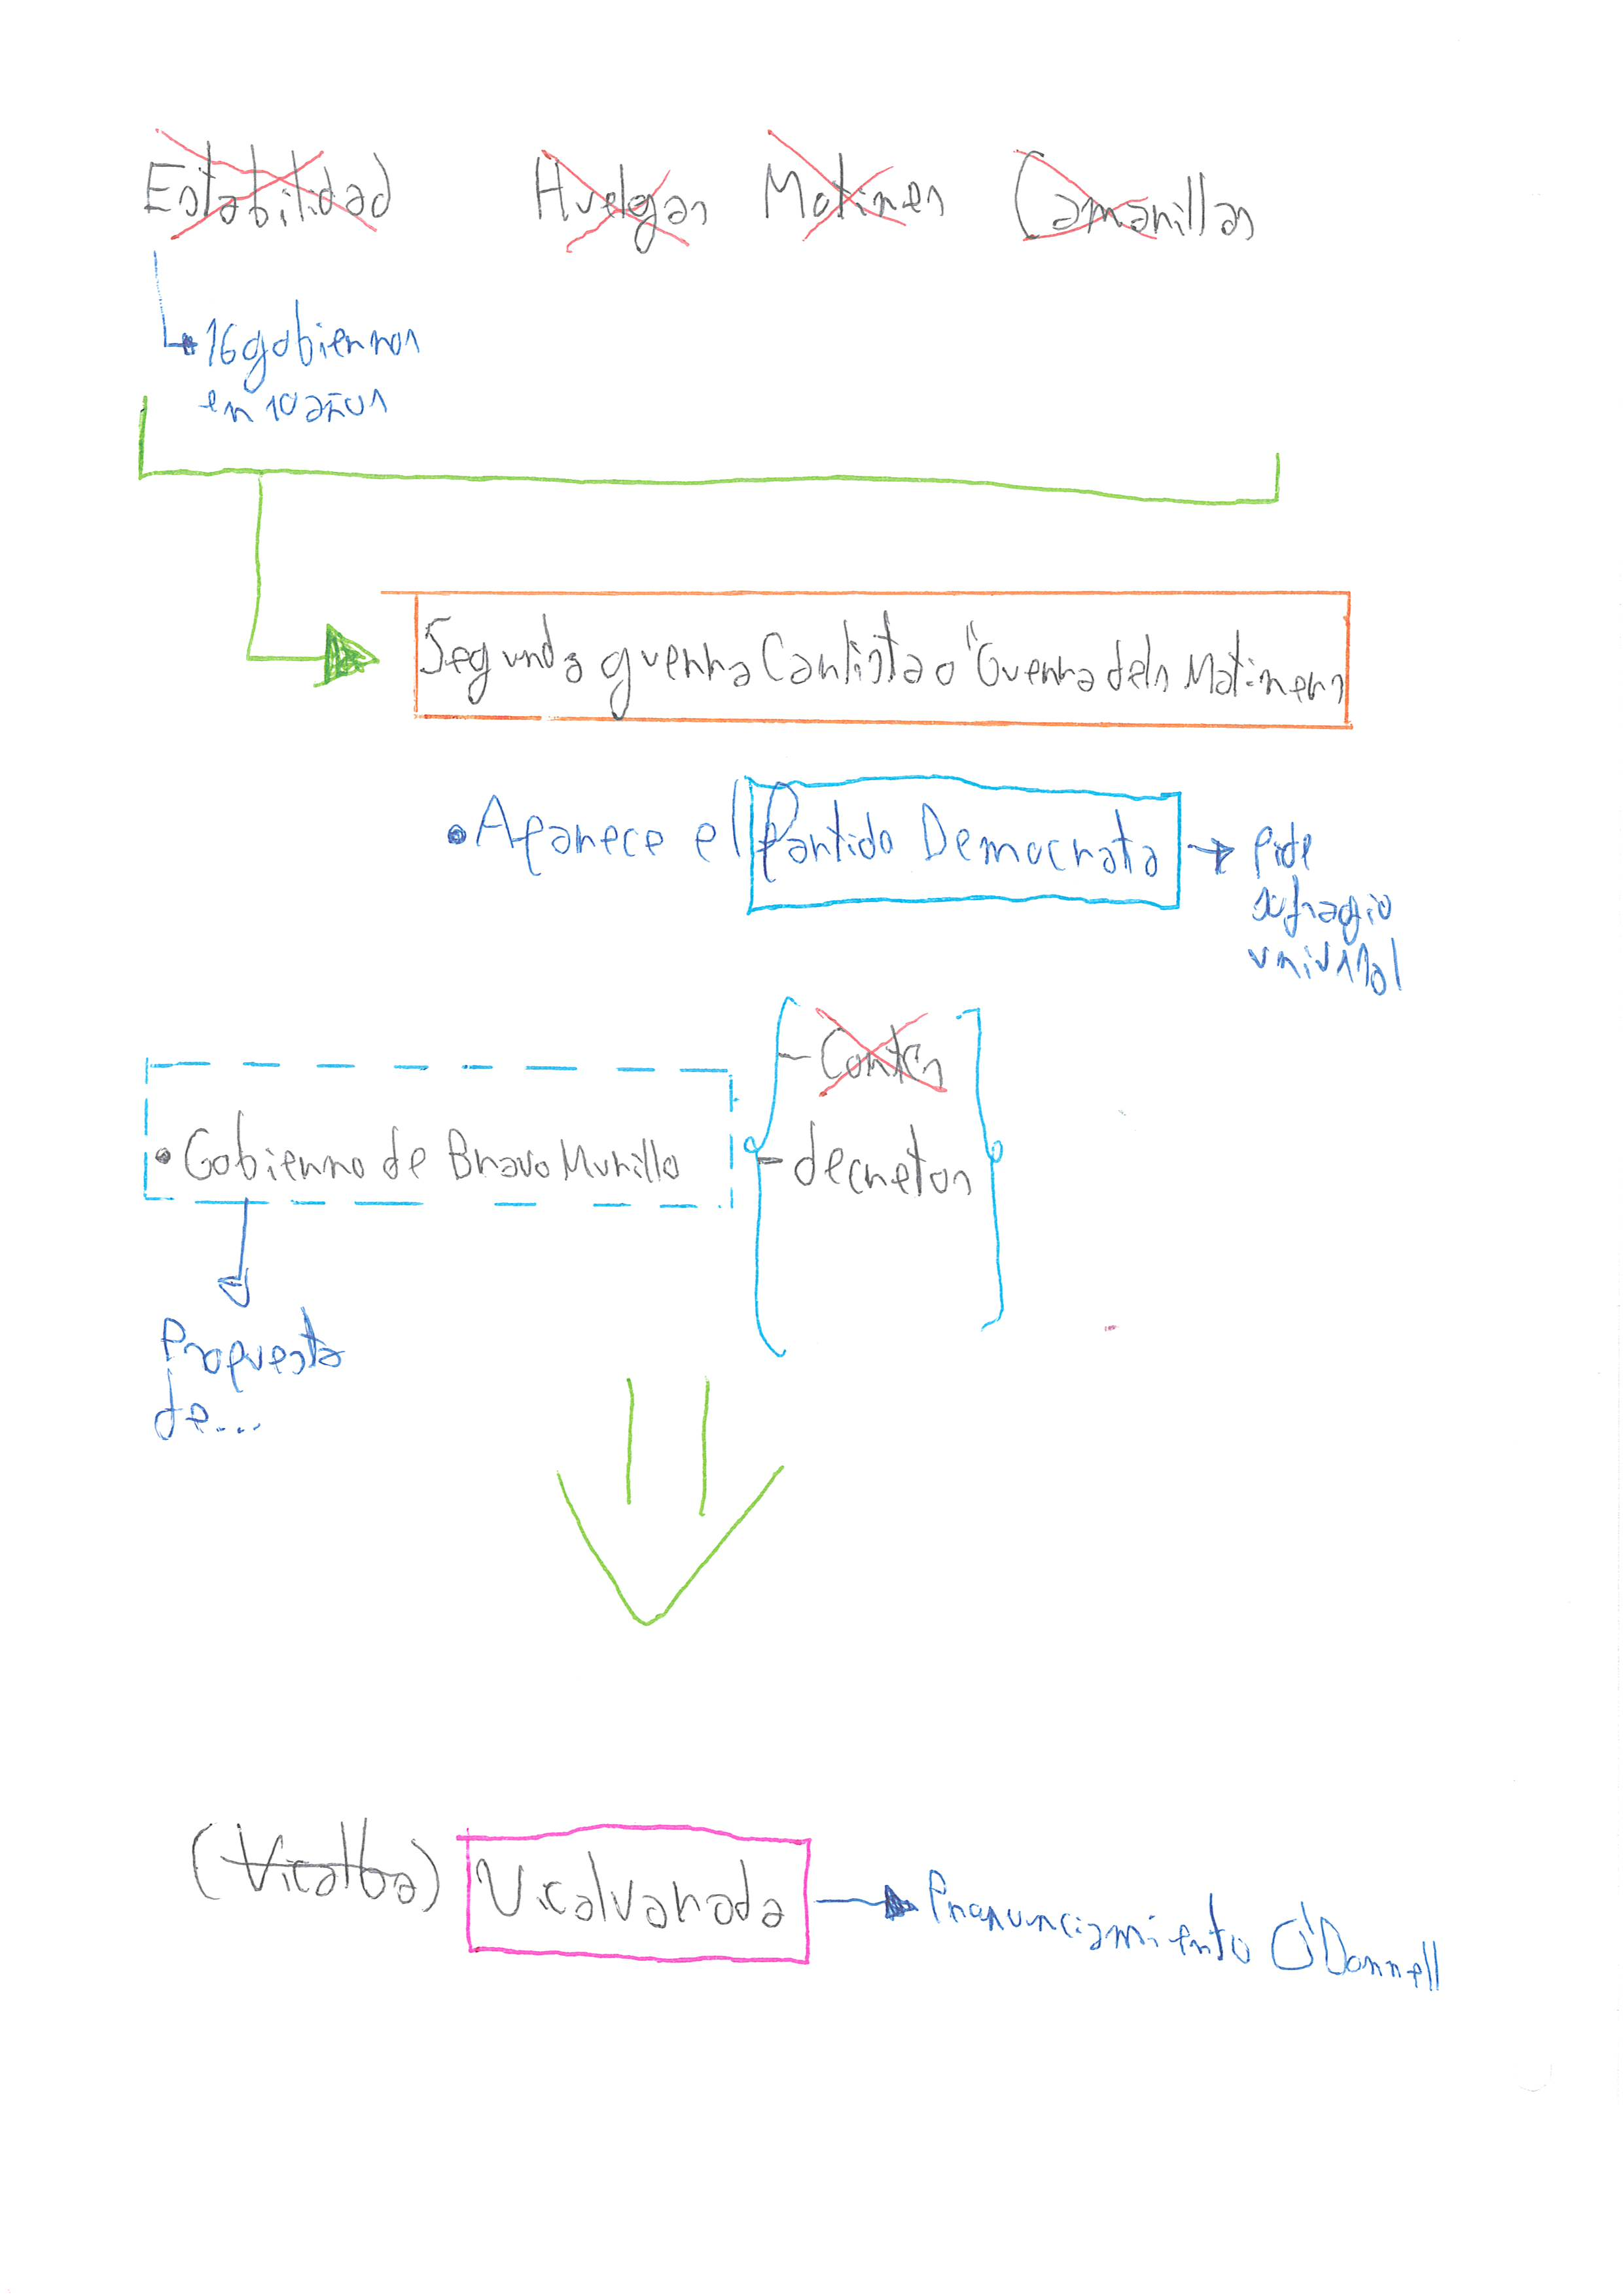 Estabilidad Huelgas Motines Camarillas
16 gobiernos
en 10 años
Segunda guerra Carlista o "Guerra dels Matiners
• Aparece el Partido Democrata → pide
sufragio
universal
- Cortes
• Gobierno de Bravo Murillo
- decretos
Propuesta
de...
(Vicalba) Vicalvarada → Pronunciamiento O'Donnell